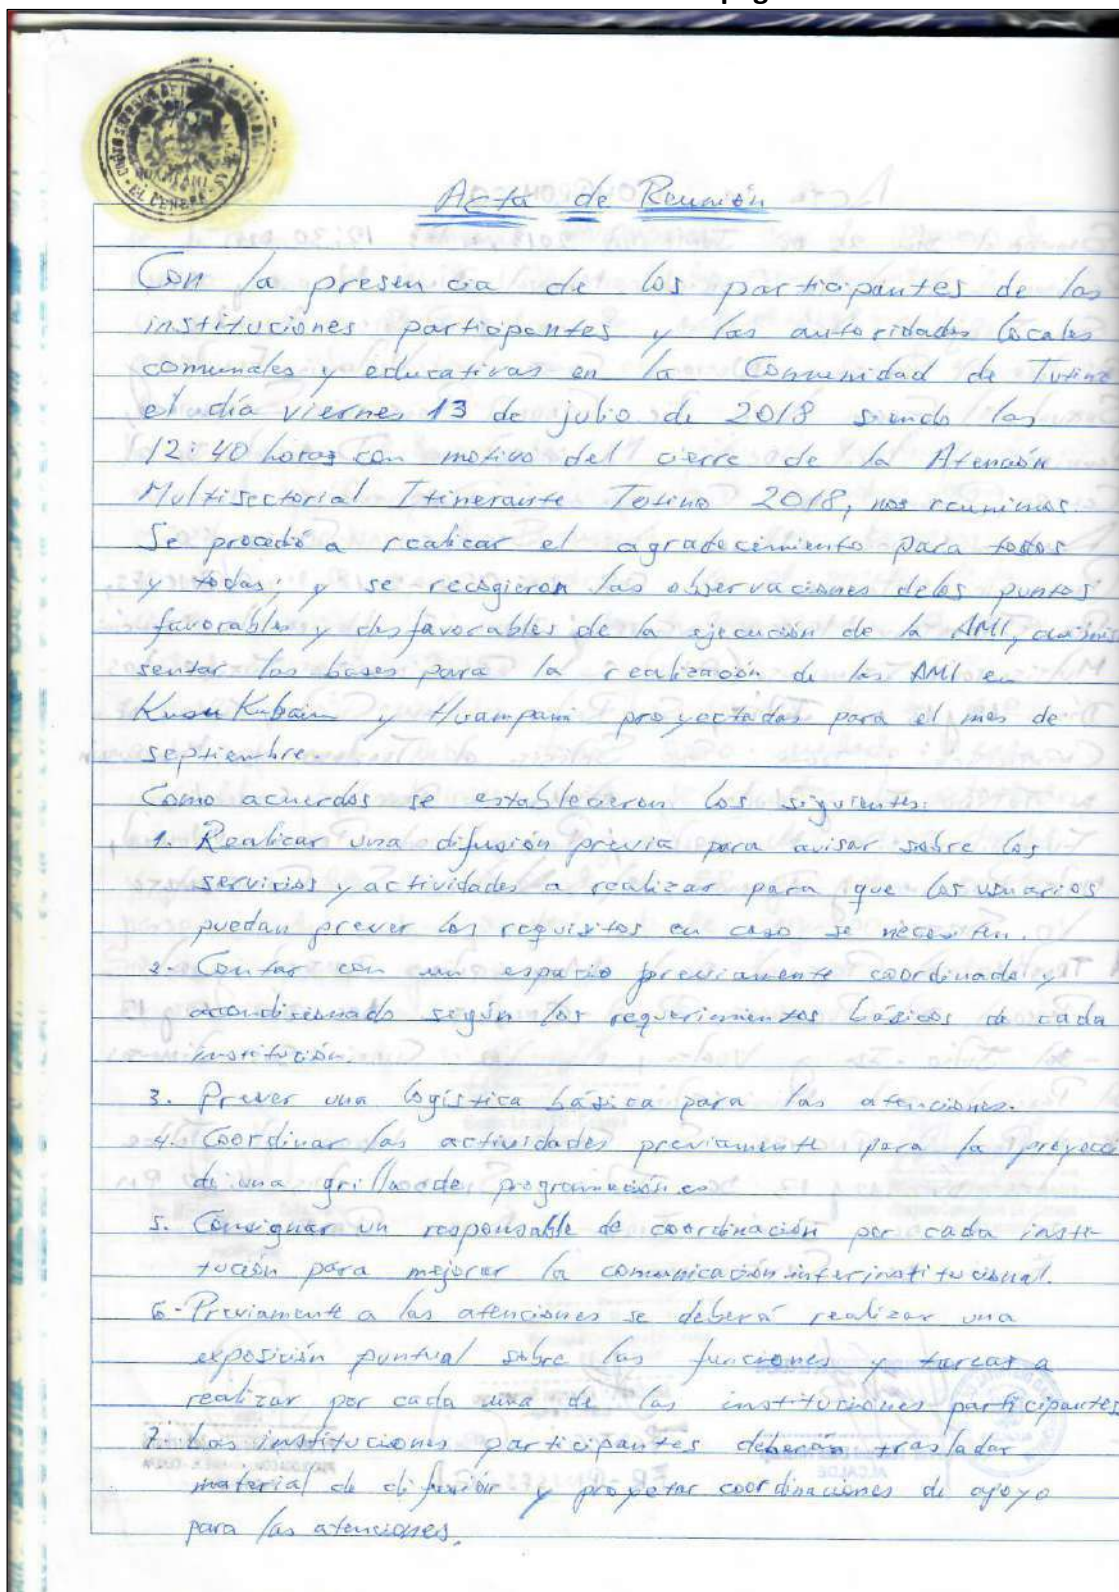 Acta de Reunión
Con la presencia de los participantes de las
instituciones participantes y las autoridades locales
comunales y educativas en la Comunidad de Tutino
el día viernes 13 de julio de 2018 siendo las
12:40 horas con motivo del cierre de la Atención
Multisectorial Itinerante Tutino 2018, nos reunimos.
Se procedió a realizar el agradecimiento para todos
y todas; y se recogieron las observaciones de los puntos
favorables y desfavorables de la ejecución de la AMI,
sentar las bases para la realización de las AMI en
Kusu Kubaim y Huampami proyectadas para el mes de
septiembre.
Como acuerdos se establecieron los siguientes:
1. Realizar una difusión previa para avisar sobre los
servicios y actividades a realizar para que los usuarios
puedan prever los requisitos en caso se necesiten.
2. Contar con un espacio previamente coordinado y
acondicionado según los requerimientos básicos de cada
institución.
3. Prever una logística básica para las atenciones.
4. Coordinar las actividades previamente para la proyecc
de una grilla de programación
5. Consignar un responsable de coordinación por cada insti-
tución para mejorar la comunicación interinstitucional.
6.- Previamente a las atenciones se deberá realizar una
exposición puntual sobre las funciones y tareas a
realizar por cada una de las instituciones participantes
7. Las instituciones participantes deberán trasladar
material de difusión y proyectar coordinaciones de apoyo
para las atenciones.